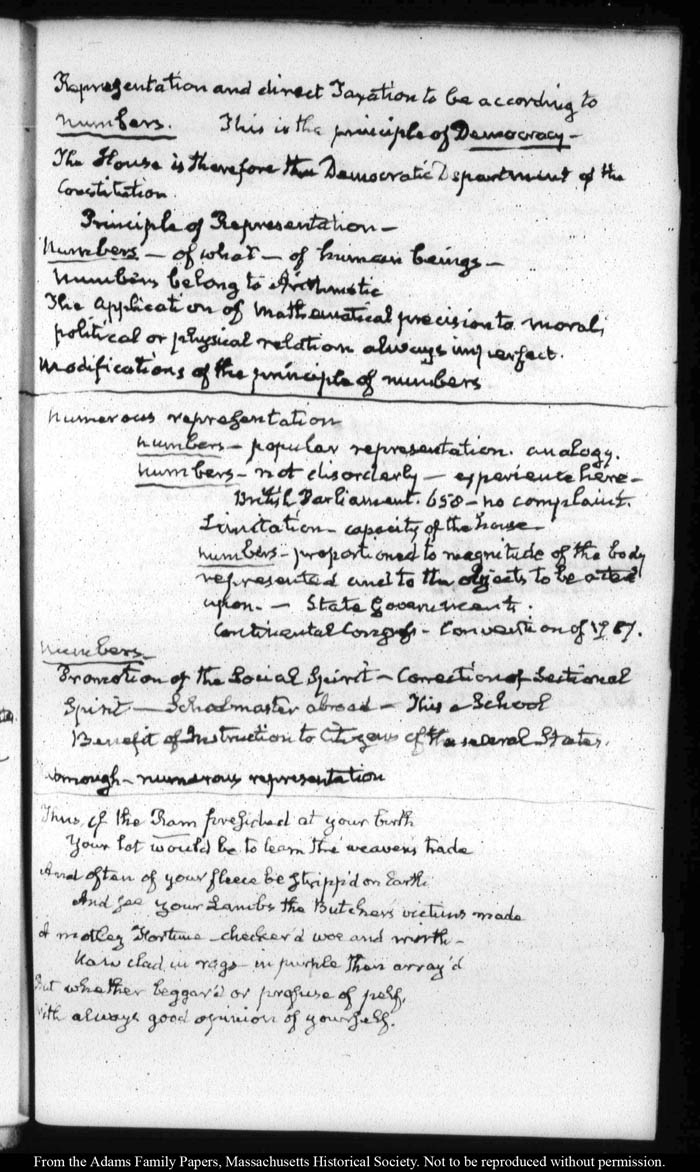 Representation and direct Taxation to be according to
numbers. This is the principle of Democracy —
The House is therefore the Democratic Department of the
Constitution.
Principle of Representation —
Numbers — of what — of human beings —
Numbers belong to Arithmetic
The application of mathematical precision to moral,
political or physical relation always imperfect.
Modifications of the principle of numbers
Numerous representation
numbers — popular representation. analogy.
numbers — not disorderly — experience here —
British Parliament. 658 — no complaint.
Limitation — capacity of the house —
numbers — proportioned to magnitude of the body
represented and to the objects to be acted
upon — State Governments.
Continental Congress — Convention of 1787.
Numbers —
Promotion of the Social Spirit — Correction of Sectional
Spirit — Schoolmaster abroad — This a School
Benefit of Instruction to Citizens of the several States.
numerous representation
Thus, if the Ram presided at your birth
Your lot would be to learn the weavers trade
And often of your fleece be stripp'd on Earth
And see your Lambs the Butchers victims made
A motley Fortune checker'd woe and mirth —
Now clad in rags — in purple then array'd
But whether beggar'd or profuse of pelf,
With always good opinion of yourself.
From the Adams Family Papers, Massachusetts Historical Society. Not to be reproduced without permission.